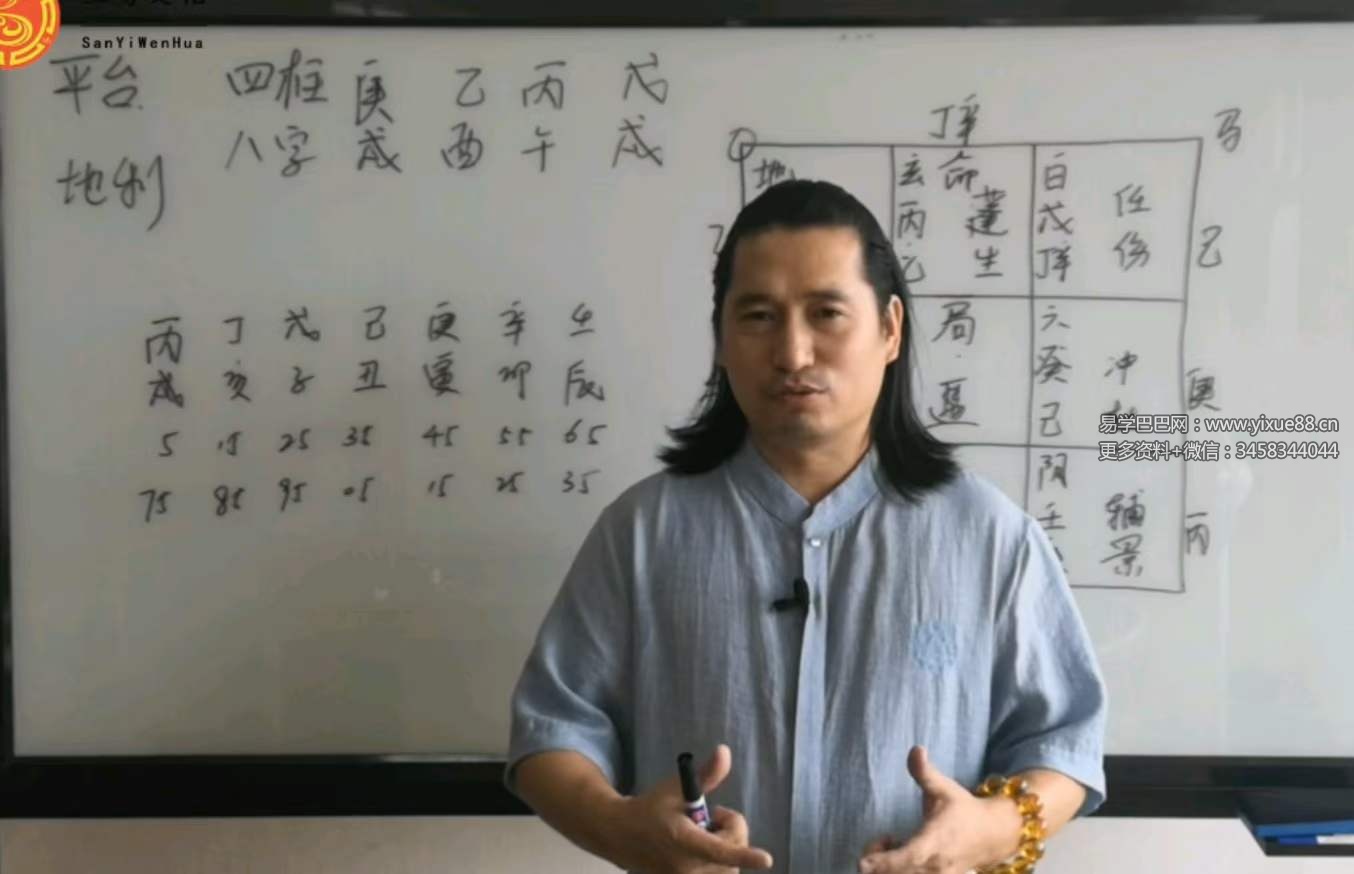 SanYiWenHua
平台 四柱 庚 乙 丙 戊
八字 戌 酉 午 戌
地利
丙 丁 戊 己 庚 辛 壬
戌 亥 子 丑 寅 卯 辰
5 15 25 35 45 55 65
75 85 95 05 15 25 35
丁辛 马
地 玄 命 白 任
丙 蓬 戊 伤 己
乙 生 丁辛
局 六 冲
癸 庚
己
阴 辅
壬 景 丙
易学巴巴网：www.yixue88.cn
更多资料+微信：3458344044